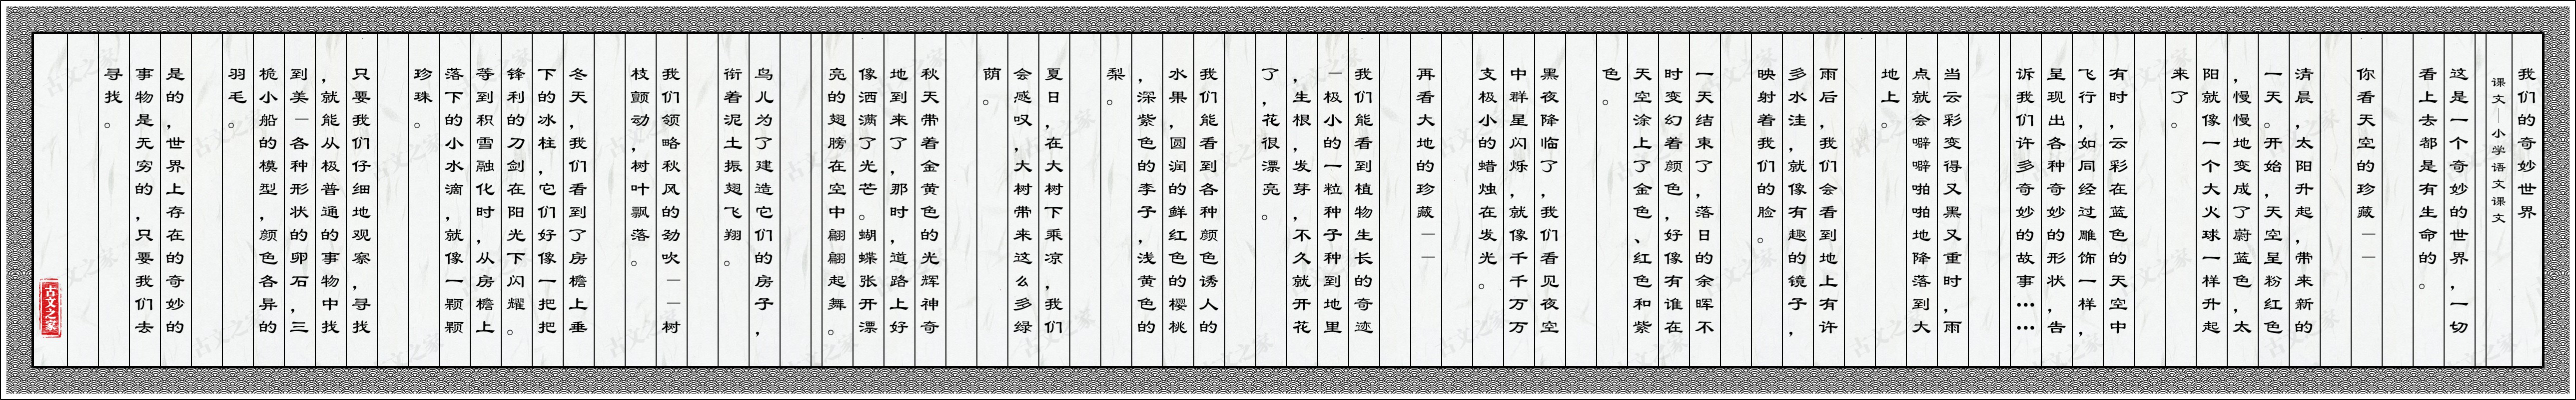 我们的奇妙世界
课文—小学语文课文
这是一个奇妙的世界，一切
看上去都是有生命的。
你看天空的珍藏——
清晨，太阳升起，带来新的
一天。开始，天空呈粉红色
，慢慢地变成了蔚蓝色，太
阳就像一个大火球一样升起
来了。
有时，云彩在蓝色的天空中
飞行，如同经过雕饰一样，
呈现出各种奇妙的形状，告
诉我们许多奇妙的故事……
当云彩变得又黑又重时，雨
点就会噼噼啪啪地降落到大
地上。
雨后，我们会看到地上有许
多水洼，就像有趣的镜子，
映射着我们的脸。
一天结束了，落日的余晖不
时变幻着颜色，好像有谁在
天空涂上了金色、红色和紫
色。
黑夜降临了，我们看见夜空
中群星闪烁，就像千千万万
支极小的蜡烛在发光。
再看大地的珍藏——
我们能看到植物生长的奇迹
—极小的一粒种子种到地里
，生根，发芽，不久就开花
了，花很漂亮。
我们能看到各种颜色诱人的
水果，圆润的鲜红色的樱桃
，深紫色的李子，浅黄色的
梨。
夏日，在大树下乘凉，我们
会感叹，大树带来这么多绿
荫。
秋天带着金黄色的光辉神奇
地到来了，那时，道路上好
像洒满了光芒。蝴蝶张开漂
亮的翅膀在空中翩翩起舞。
鸟儿为了建造它们的房子，
衔着泥土振翅飞翔。
我们领略秋风的劲吹——树
枝颤动，树叶飘落。
冬天，我们看到了房檐上垂
下的冰柱，它们好像一把把
锋利的刀剑在阳光下闪耀。
等到积雪融化时，从房檐上
落下的小水滴，就像一颗颗
珍珠。
只要我们仔细地观察，寻找
，就能从极普通的事物中找
到美—各种形状的卵石，三
桅小船的模型，颜色各异的
羽毛。
是的，世界上存在的奇妙的
事物是无穷的，只要我们去
寻找。
古文之家